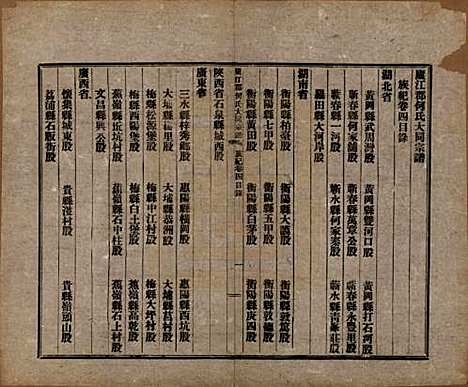 廬江郡何氏大同宗譜
族紀卷四目錄
湖北省
黃岡武周灣股　黃岡縣雙河口股　黃岡打石河股
蘄春何家舖股　蘄春縣萬章公股　蘄春永豐里股
蘄春一河股　蘄水縣何家寨股　蘄水青蓬莊股
羅田縣大河岸股
湖南省
衡陽縣柏茲股　衡陽縣大議股　衡陽縣敦篤股
衡陽縣七甲股　衡陽縣五甲股　衡陽縣敦德股
衡陽縣黃甲股　衡陽縣白茅股　衡陽縣庚四股
廬江郡何氏大同宗譜　族紀卷四目錄　一
陝西省石泉縣城西股
廣東省
三水縣梓秀鄉股　惠陽縣橫岡股　惠陽縣西坑股
大埔縣維里股　大埔縣恭洲股　大埔縣莒村股
梅縣松源堡股　梅縣中江村股　梅縣大坪村股
梅縣西陽堡股　梅縣白土堡股　蕉嶺縣高乾股
蕉嶺縣坵坑村股　蕉嶺縣石中柱股　蕉嶺縣石上村股
文昌縣興文股
廣西省
懷集縣城東股　貴縣後村股　貴縣嶺頭山股
荔浦縣石阪街股